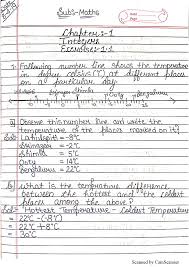 Sub:- Maths
Date
Page
Chapter:-1
Integers
Exercise:-1.1
1:- Following number line shows the temperature
in degree celsius (°C) at different places
on a particular day.
Lahulspiti Srinagar Shimla Ooty Bengaluru
a) Observe this number line and write the
temperature of the places marked on it?
Sol:- Lahulspiti = -8°C
Srinagar = -2°C
Shimla = 5°C
Ooty = 14°C
Bengaluru = 22°C
b) What is the temperature difference
between the hottest and the coldest
places among the above?
Sol:- Hottest Temperature - Coldest Temperature
= 22°C - (-8°C)
= 22°C + 8°C
= 30°C
Scanned by CamScanner